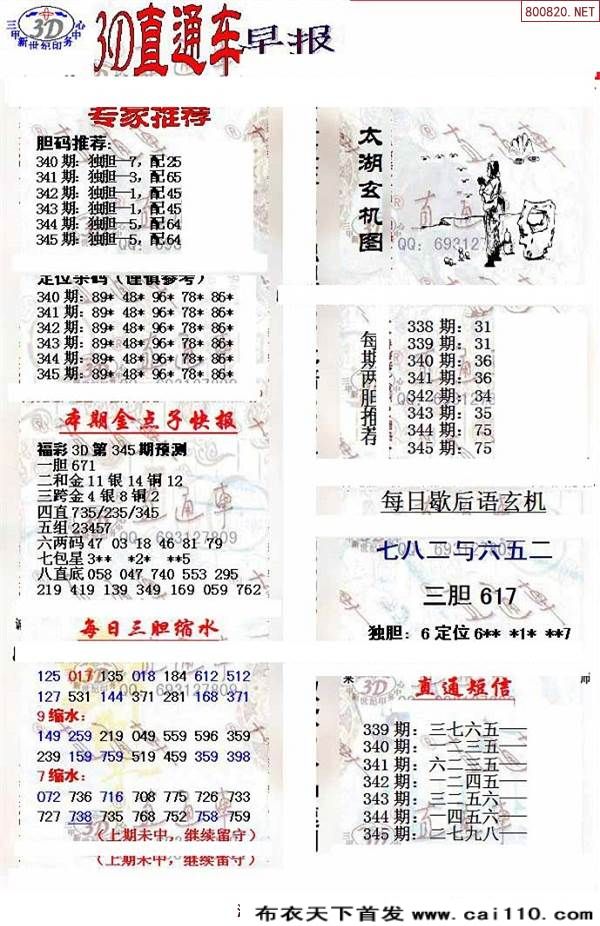 三甲 3D 中心
新世纪印务
3D直通车早报
800820.NET
专家推荐
胆码推荐:
340 期: 独胆—7, 配25
341 期: 独胆—3, 配65
342 期: 独胆—1, 配45
343 期: 独胆—1, 配45
344 期: 独胆—5, 配64
345 期: 独胆—5, 配64
定位杀码(谨慎参考)
340 期: 89* 48* 96* 78* 86*
341 期: 89* 48* 96* 78* 86*
342 期: 89* 48* 96* 78* 86*
343 期: 89* 48* 96* 78* 86*
344 期: 89* 48* 96* 78* 86*
345 期: 89* 48* 96* 78* 86*
本期金点子快报
福彩 3D 第 345 期预测
一胆 671
二和金 11 银 14 铜 12
三跨金 4 银 8 铜 2
四直 735/235/345
五组 23457
六两码 47 03 18 46 81 79
七包星 3** *2* **5
八直底 058 047 740 553 295
219 419 139 349 169 059 762
每日三胆缩水
125 017 135 018 184 612 512
127 531 144 371 281 168 371
9 缩水:
149 259 219 049 559 596 359
239 159 759 519 459 359 398
7 缩水:
072 736 716 708 775 726 733
727 738 735 768 752 758 759
(上期未中,继续留守)
(上期未中,继续留守)
太湖玄机图
QQ: 693127809
每期两胆推荐
338 期: 31
339 期: 31
340 期: 36
341 期: 36
342 期: 34
343 期: 35
344 期: 75
345 期: 75
每日歇后语玄机
七八二与六五二
三胆 617
独胆: 6 定位 6** *1* **7
直通短信
339 期: 三七六五一
340 期: 一二三五一
341 期: 六二三五一
342 期: 一二四五一
343 期: 三二五六一
344 期: 一四五六一
345 期: 二七九八一
布衣天下首发 www.cai110.com